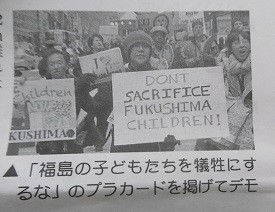 DON'T
SACRIFICE
FUKUSHIMA
CHILDREN!
children
KUSHIMA
▲「福島の子どもたちを犠牲にす
るな」のプラカードを掲げてデモ